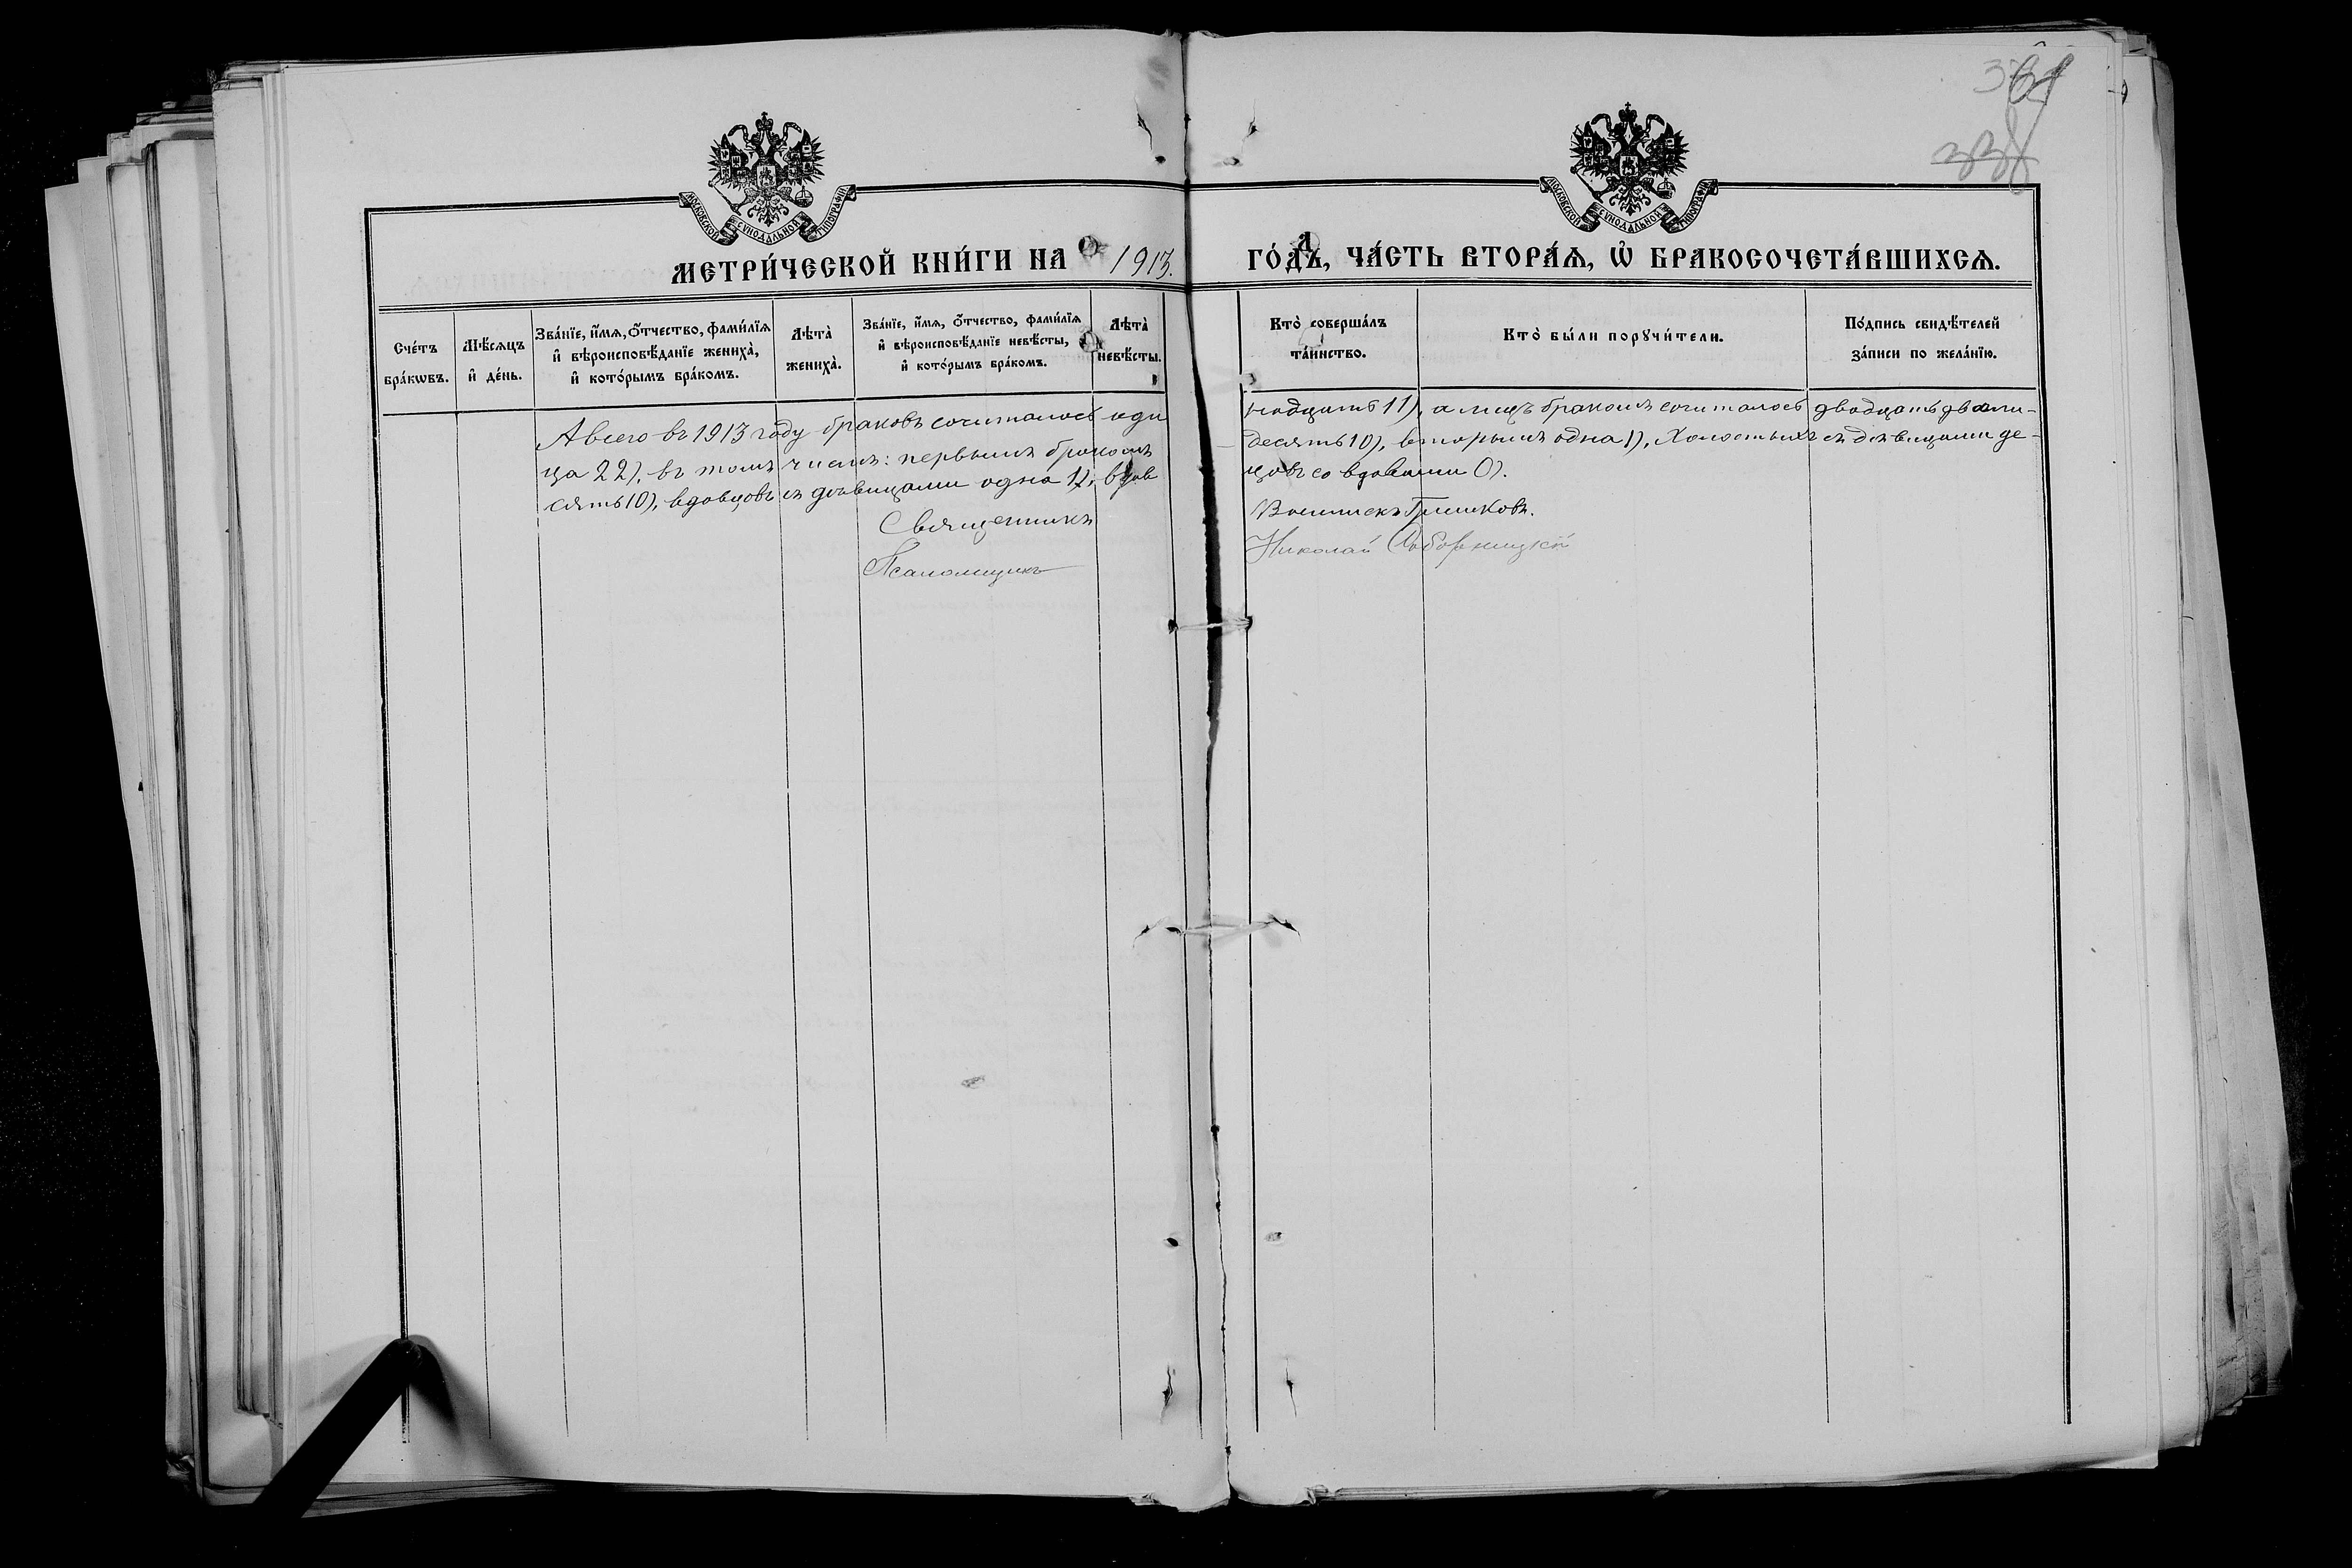 МОСКОВСКОЙ СѴНОДАЛЬНОЙ ТИПОГРАФІИ
МОСКОВСКОЙ СѴНОДАЛЬНОЙ ТИПОГРАФІИ
МЕТРИ́ЧЕСКОЙ КНИ́ГИ НА 1913. ГО́ДЪ, ЧА́СТЬ ВТОРА́Ѧ, Ѡ҆ БРАКОСОЧЕТА́ВШИХСѦ.
Сче́тъ бра́кѡвъ.
Мѣ́сѧцъ и҆ де́нь.
Зва́нїе, и҆́мѧ, ѻ҆́тчество, фами́лїѧ и҆ вѣроисповѣ́данїе жениха̀, и҆ кото́рымъ бра́комъ.
Лѣта̀ жениха̀.
Зва́нїе, и҆́мѧ, ѻ҆́тчество, фами́лїѧ и҆ вѣроисповѣ́данїе невѣ́сты, и҆ кото́рымъ бра́комъ.
Лѣта̀ невѣ́сты.
Кто̀ соверша́лъ та́инство.
Кто̀ бы́ли порꙋчи́тели.
По́дпись свидѣ́телей за́писи по жела́нїю.
А всего въ 1913 году браковъ сочиталось оди надцать 11), а лицъ бракомъ сочиталось двадцать два ли-
ца 22), въ томъ числѣ: первымъ бракомъ десять 10), вторымъ одна 1), Холостыхъ съ дѣвицами де-
сять 10), вдовцовъ съ дѣвицами одна 1), вдов цовъ со вдовами 0).
Священникъ Гришковъ.
Псаломщикъ Николай